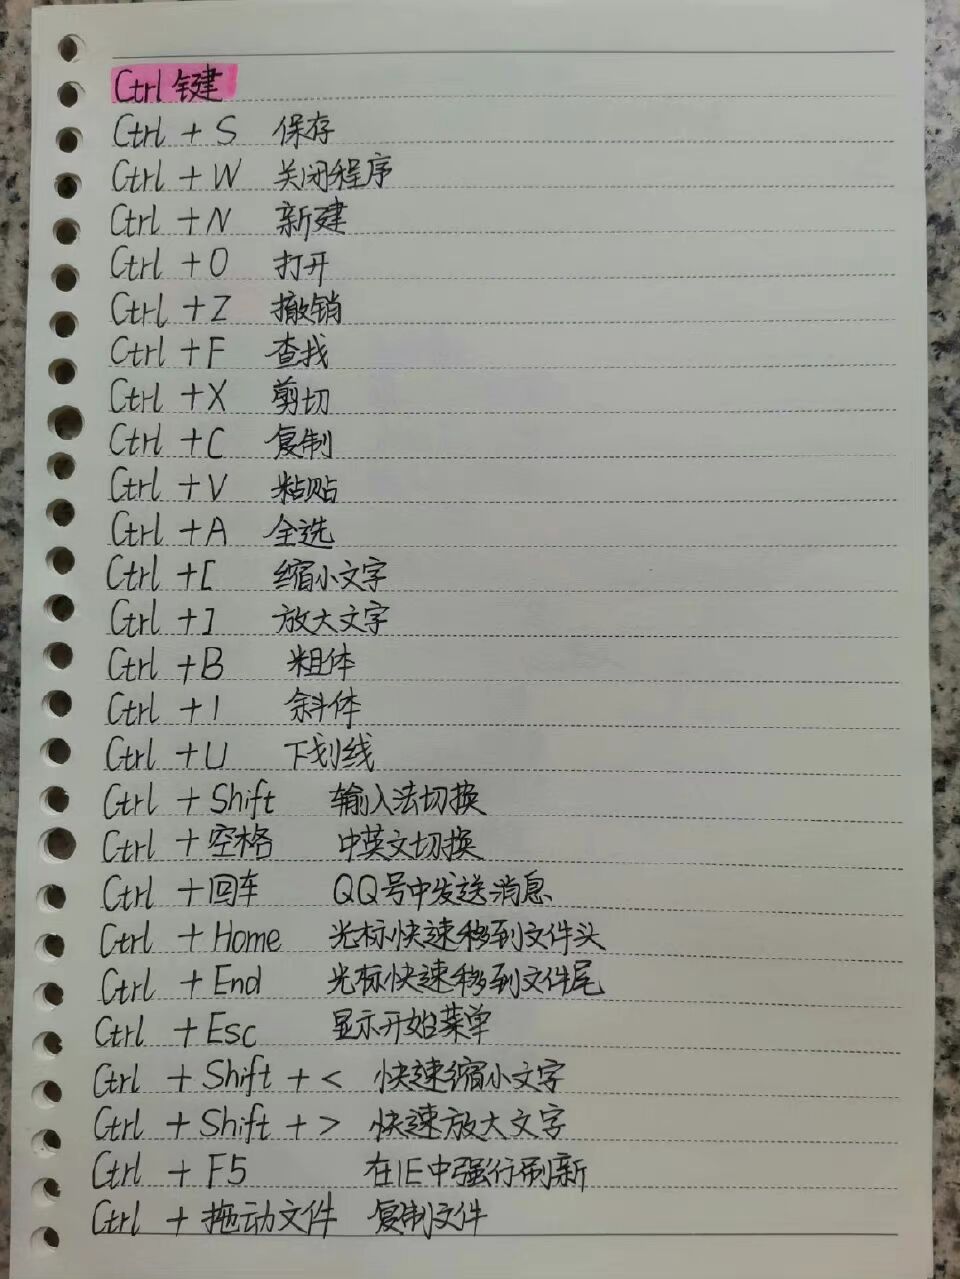 Ctrl 键
Ctrl + S 保存
Ctrl + W 关闭程序
Ctrl + N 新建
Ctrl + O 打开
Ctrl + Z 撤销
Ctrl + F 查找
Ctrl + X 剪切
Ctrl + C 复制
Ctrl + V 粘贴
Ctrl + A 全选
Ctrl + [ 缩小文字
Ctrl + ] 放大文字
Ctrl + B 粗体
Ctrl + I 斜体
Ctrl + U 下划线
Ctrl + Shift 输入法切换
Ctrl + 空格 中英文切换
Ctrl + 回车 QQ号中发送消息
Ctrl + Home 光标快速移到文件头
Ctrl + End 光标快速移到文件尾
Ctrl + Esc 显示开始菜单
Ctrl + Shift + < 快速缩小文字
Ctrl + Shift + > 快速放大文字
Ctrl + F5 在IE中强行刷新
Ctrl + 拖动文件 复制文件